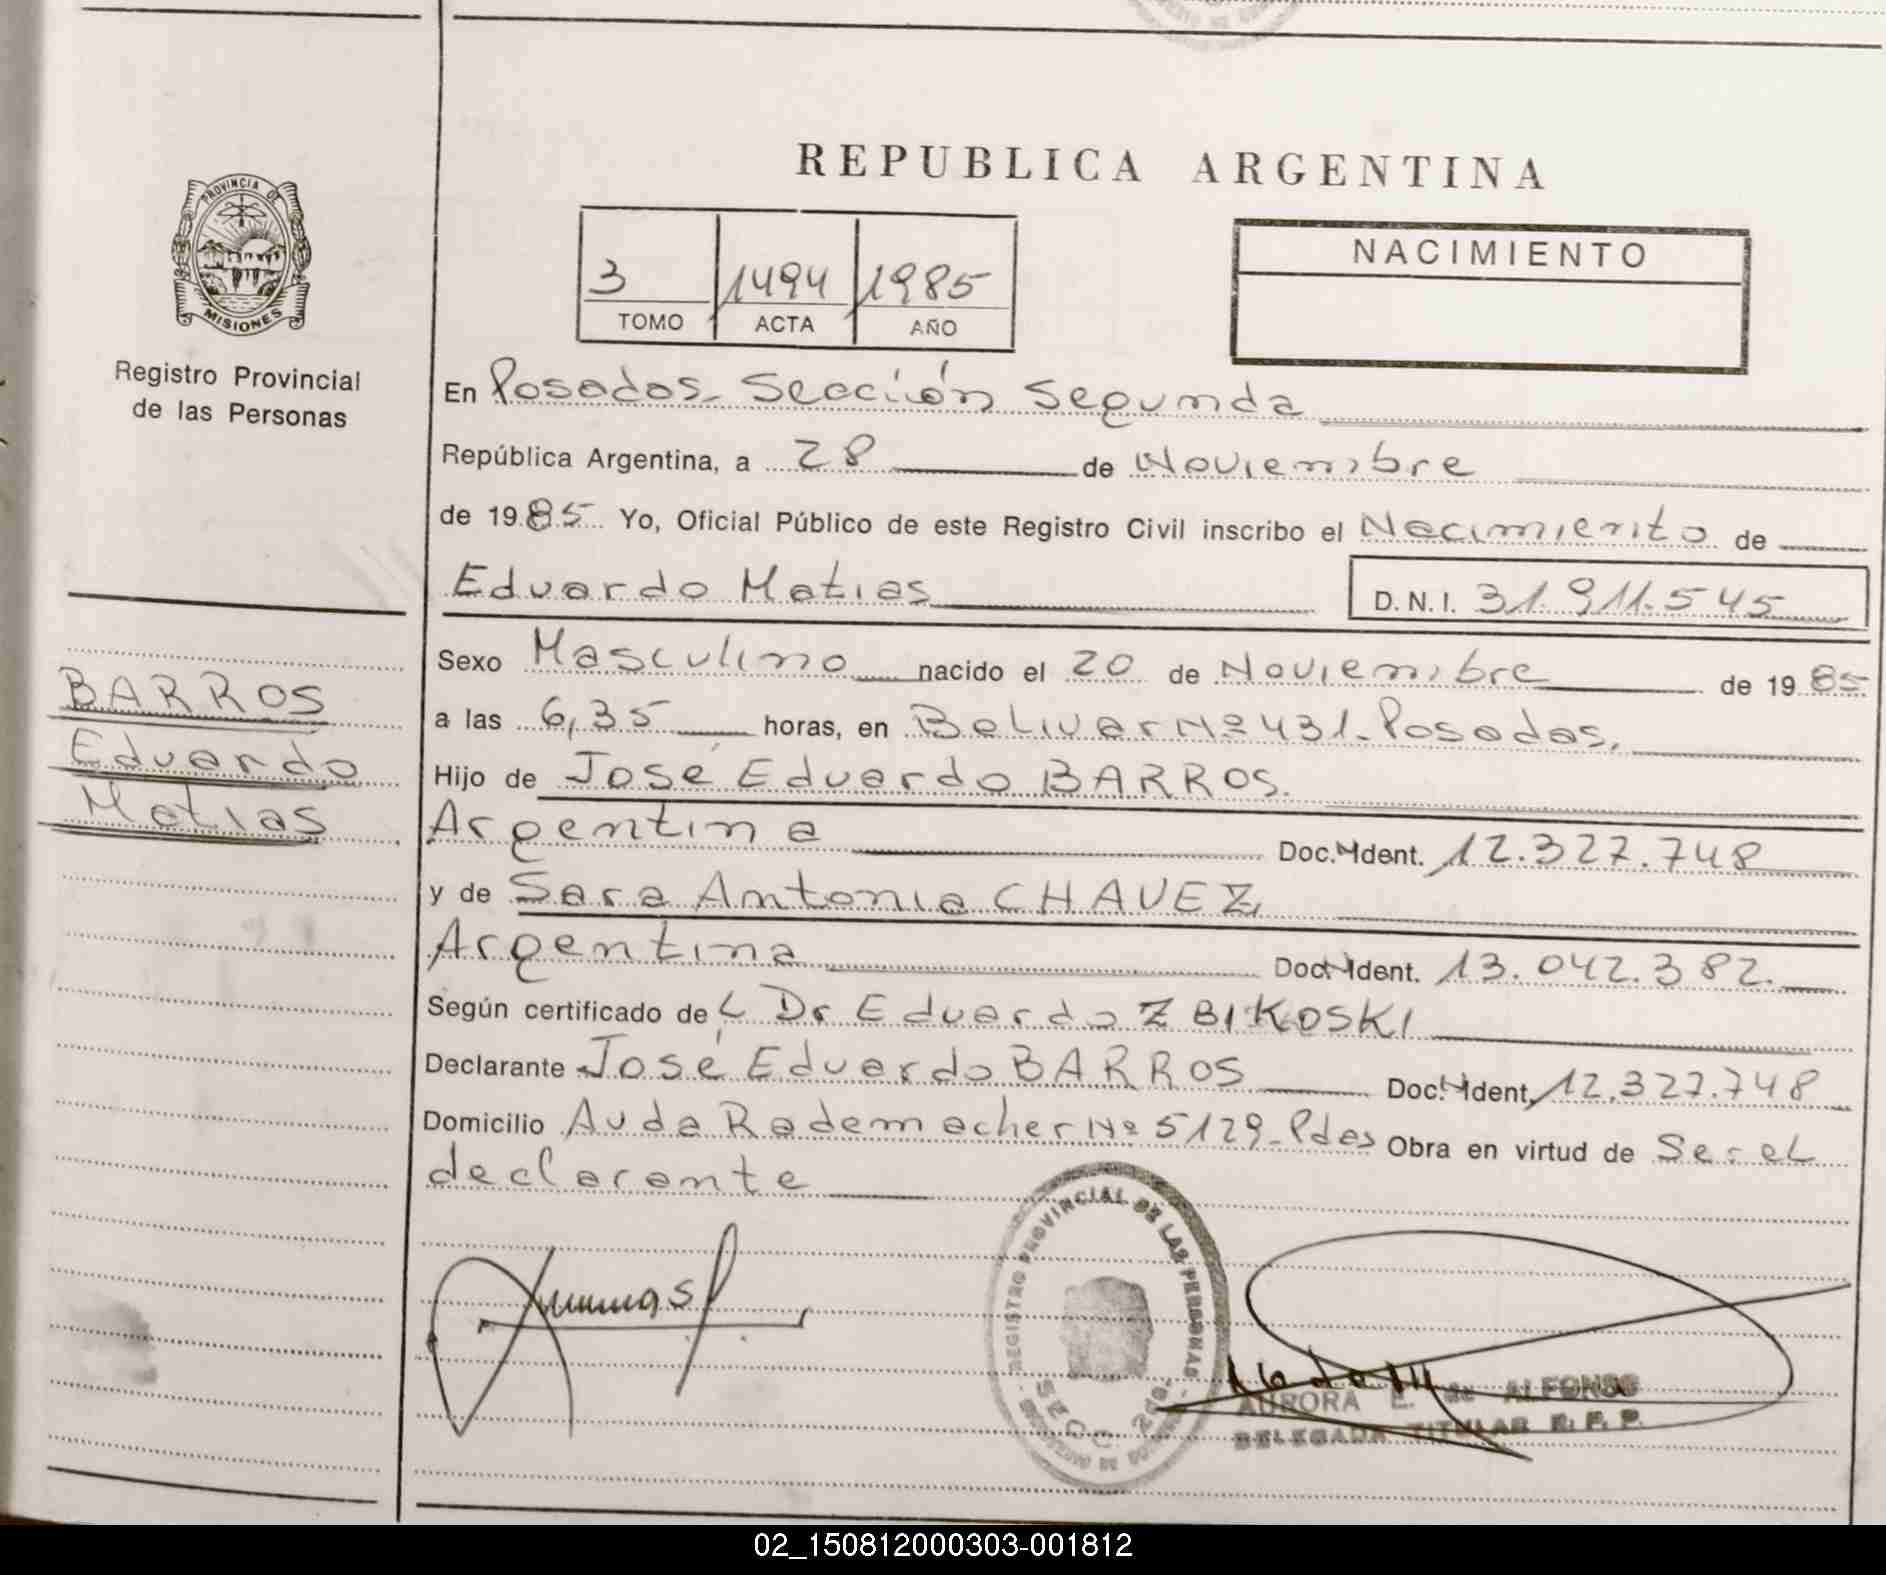 REPUBLICA ARGENTINA
PROVINCIA DE
MISIONES
Registro Provincial
de las Personas
3 1494 1985
TOMO ACTA AÑO
NACIMIENTO
En Posadas Sección Segunda
República Argentina, a 28 de Noviembre
de 1985 Yo, Oficial Público de este Registro Civil inscribo el Nacimiento de
Eduardo Matias D.N.I. 31.911.545
BARROS
Eduardo
Matias
Sexo Masculino nacido el 20 de Noviembre de 1985
a las 6,35 horas, en Bolivar Nº 431- Posadas,
Hijo de José Eduardo BARROS.
Argentina Doc. Ident. 12.327.748
y de Sara Antonia CHAVEZ,
Argentina Doc. Ident. 13.042.382.
Según certificado de L Dr Eduardo ZBIKOSKI
Declarante José Eduardo BARROS Doc. Ident. 12.327.748
Domicilio Avda Rademacher Nº 5129- Pdas Obra en virtud de Ser el
declarante
REGISTRO PROVINCIAL DE LAS PERSONAS
SECC. 2da
AURORA E. de ALFONSO
DELEGADA TITULAR R. P. P.
02_150812000303-001812